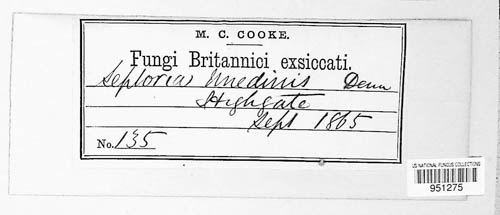 M. C. COOKE.
Fungi Britannici exsiccati.
Septoria Unedinis
Highgate
Sept 1865
No. 135
US NATIONAL FUNGUS COLLECTIONS
951275